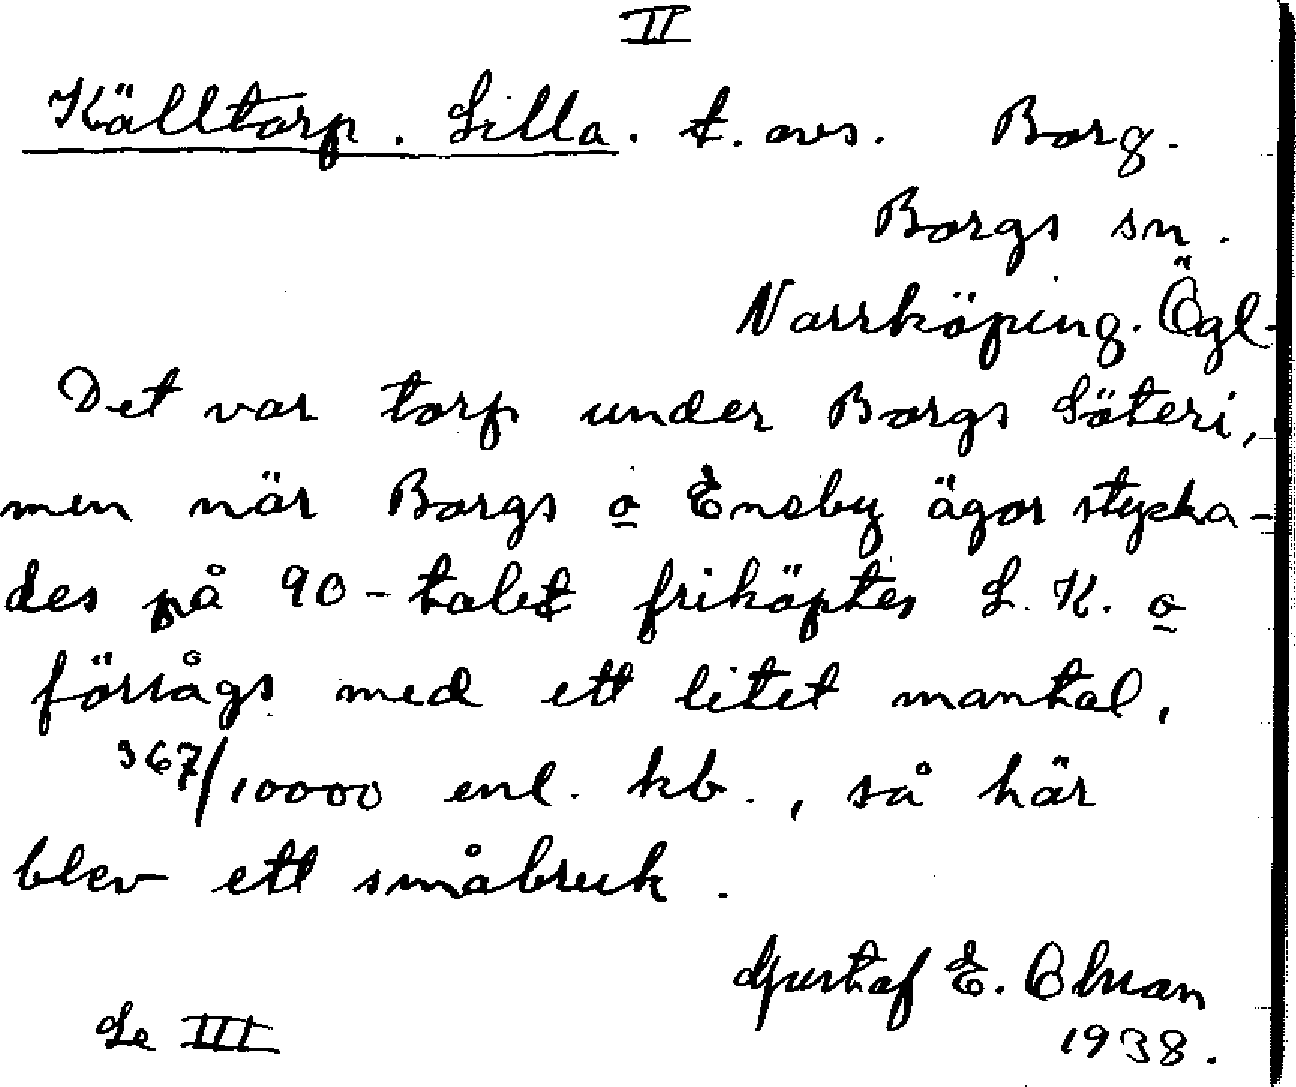 II
Källtorp. Lilla. t. avs. Borg.
Borgs sn.
Norrköping. Ögl.
Det var torp under Borgs Säteri,
men när Borgs o Eneby ägor stycka-
des på 90-talet friköptes L. K. o
försågs med ett litet mantal,
367/10000 enl. kb., så här
blev ett småbruk.
Gustaf E.
1938.
Se III